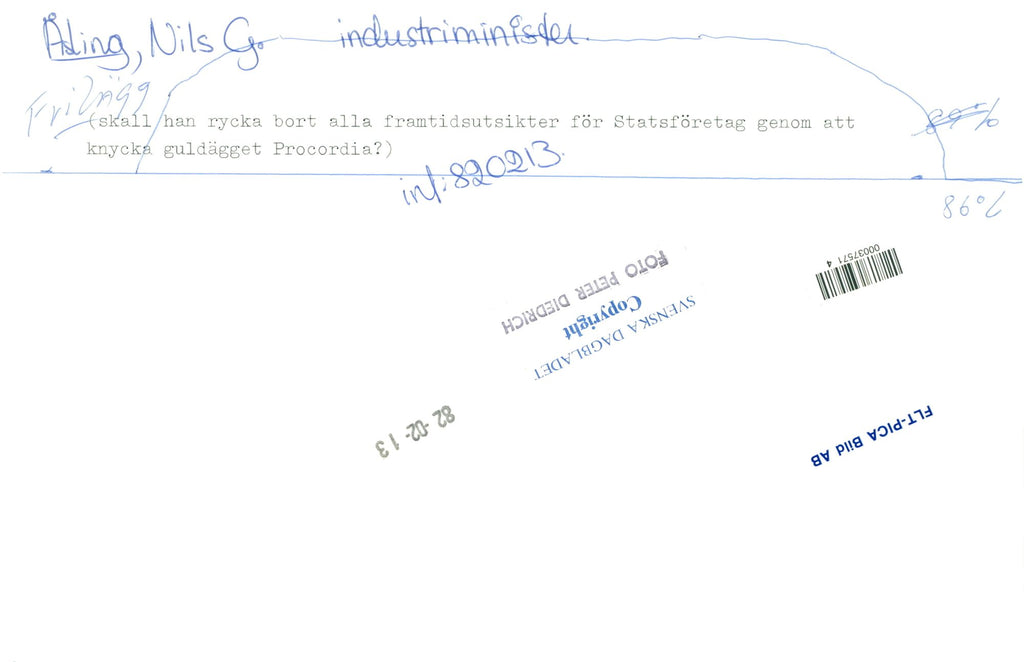 Åsling, Nils G. industriminister
Frilägg
(skall han rycka bort alla framtidsutsikter för Statsföretag genom att
knycka guldägget Procordia?)
89%
inf: 820213.
86%
00037571 4
FOTO PETER DIEDRICH
Copyright
SVENSKA DAGBLADET
82-02-13
FLT-PICA Bild AB